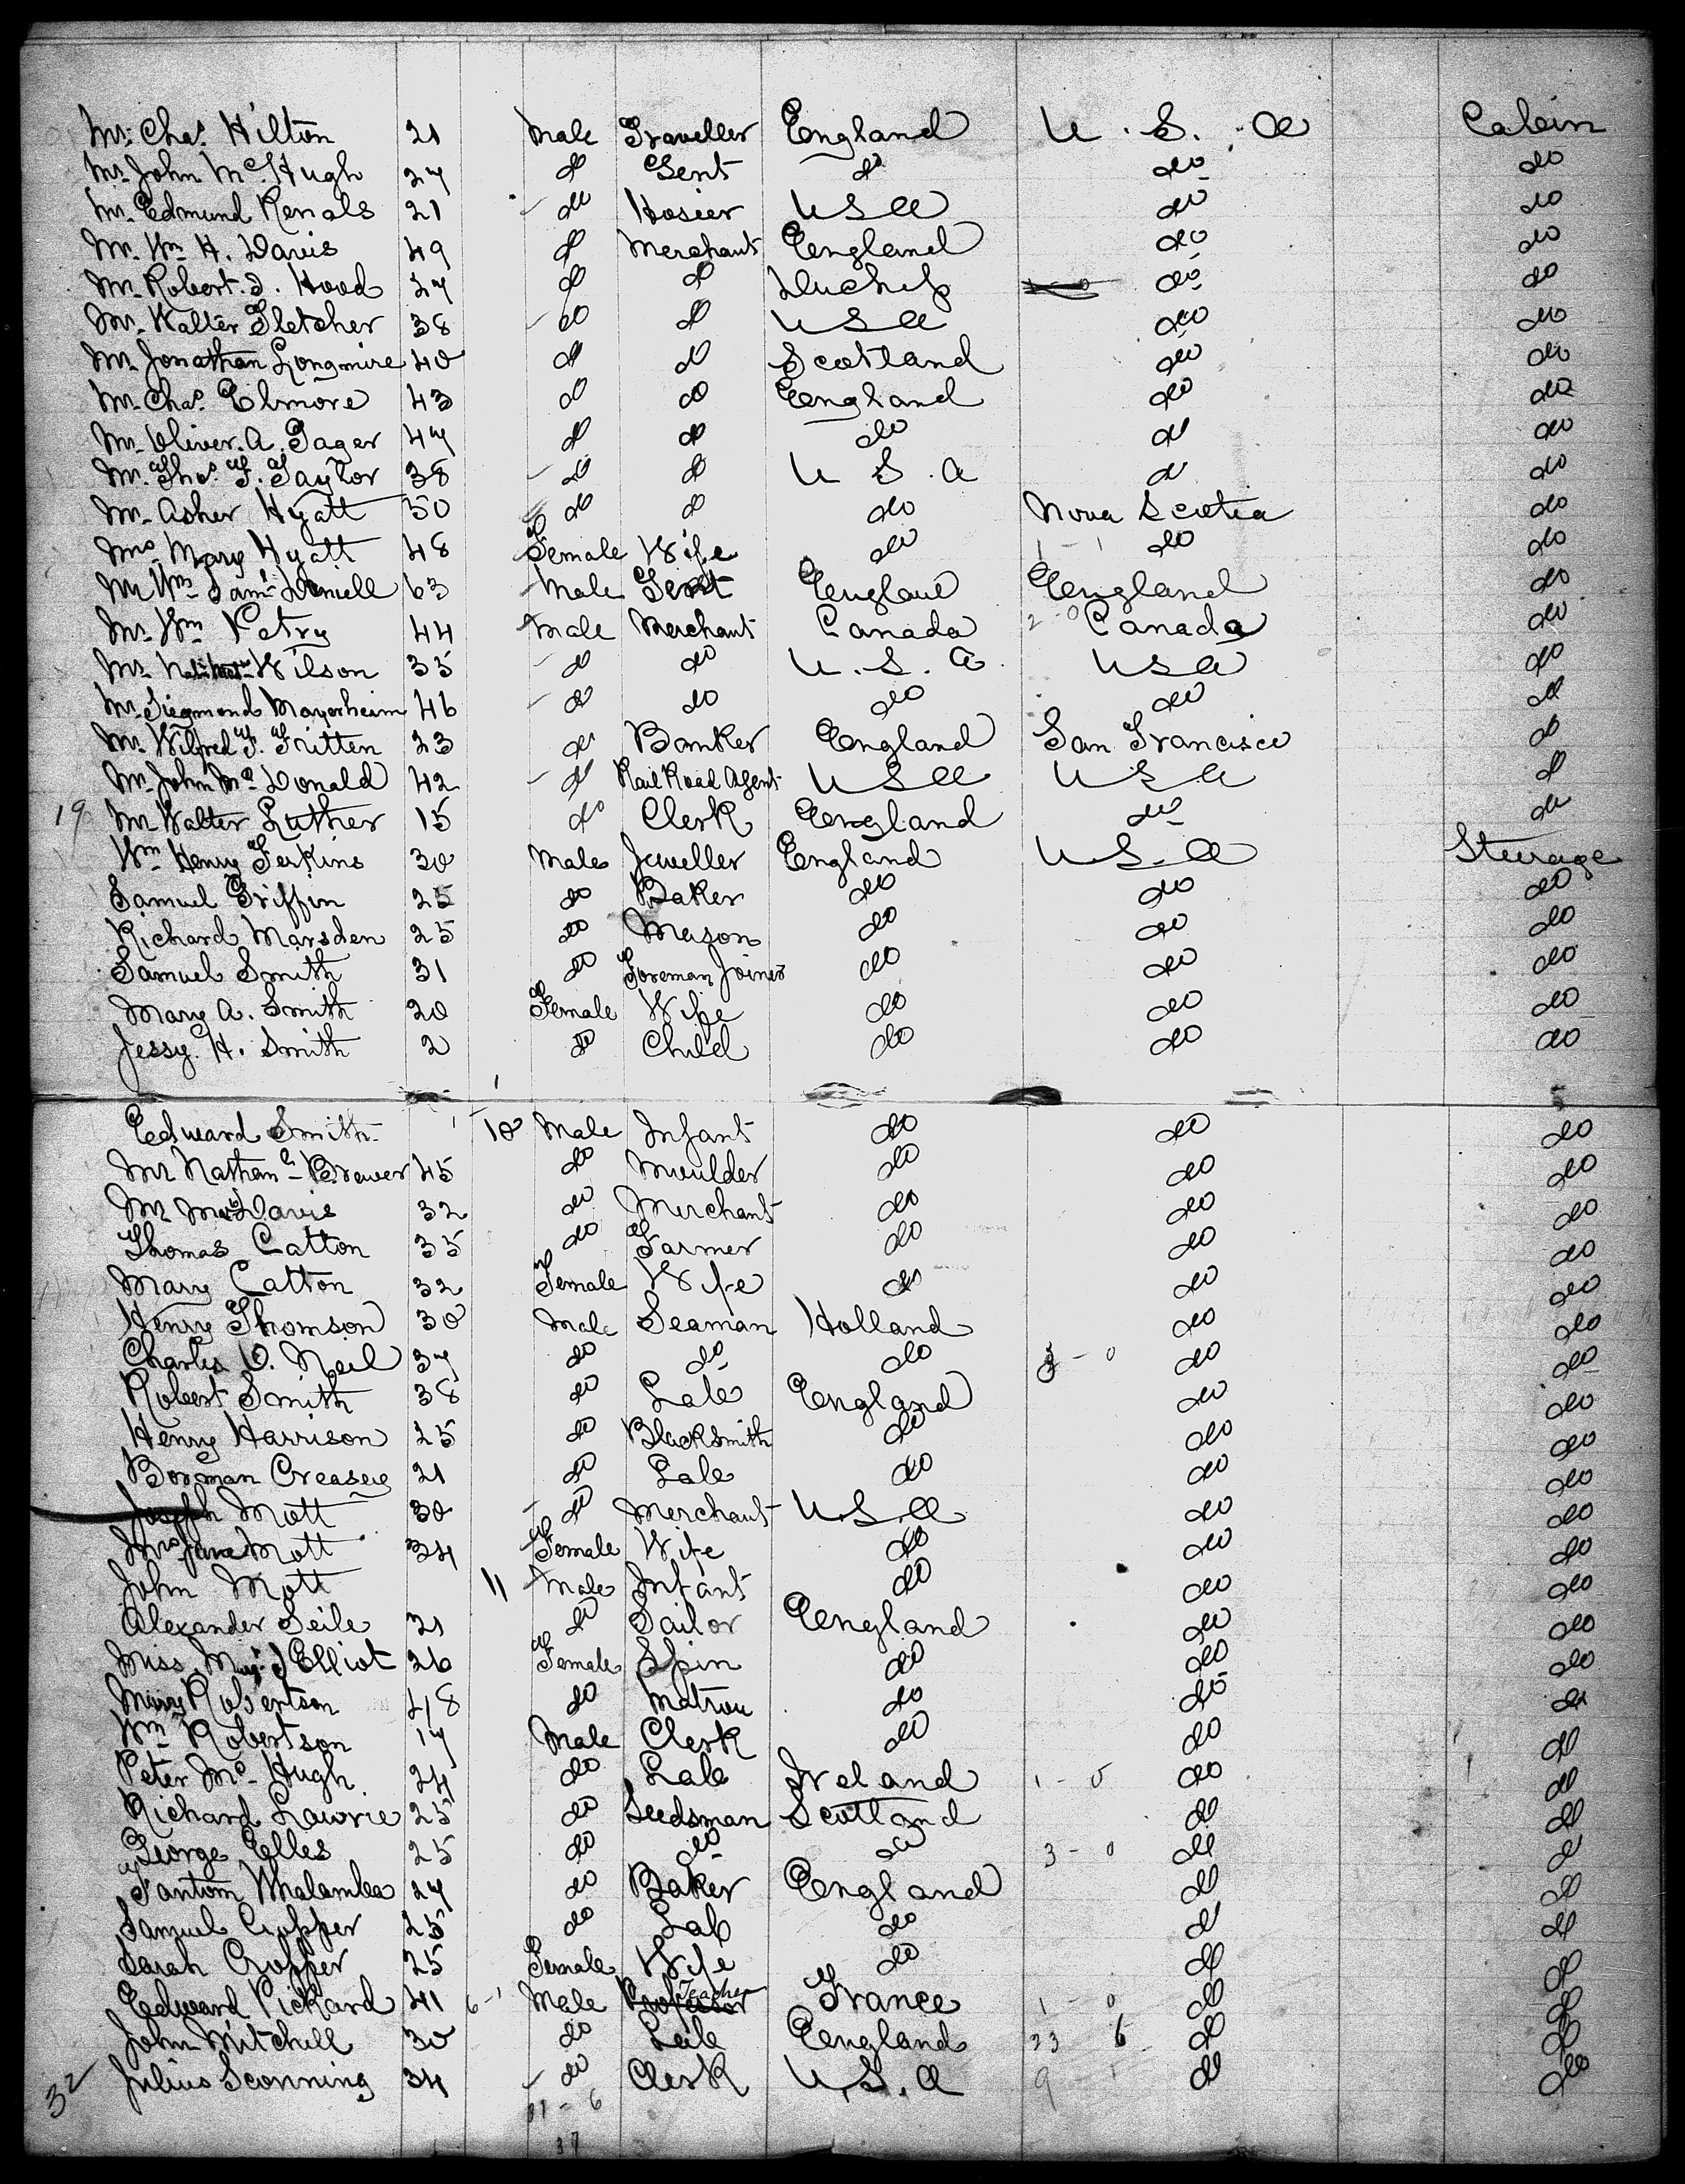 Mr. Chas. Hilton 21 Male Traveller England U. S. A Cabin
Mr. John McHugh 27 do Gent do do do
Mr. Edmund Renals 21 do Hosier U S A do do
Mr. Wm H. Davis 49 do Merchant England do do
Mr. Robert. I. Hood 27 do do do do
Mr. Walter Fletcher 38 do do U S A do do
Mr. Jonathan Longmire 40 do do Scotland do do
Mr. Chas. Elmore 43 do do England do do
Mr. Oliver. A. Gager 47 do do do do do
Mr. Thos. F. Taylor 38 do do U S. A do do
Mr. Asher Hyatt 50 do do do Nova Scotia do
Mrs Mary Hyatt 48 Female Wife do 1 - 1 do do
Mr Wm Saml 63 Male Gent England England do
Mr. Wm Petry 44 Male Merchant Canada 2 - 0 Canada do
Mr. Wilson 35 do do U. S. A. U S A do
Mr. Siegmond Mayerheim 46 do do do do do
Mr. Wilfred F. Fritten 23 do Banker England San Francisco do
Mr. John McDonald 42 do Rail Road Agent U S A U S A do
19 Mr. Walter Luther 15 do Clerk England do do
Wm Henry Ferkins 30 Male Jeweller England U. S. A Steerage
Samuel Griffin 25 do Baker do do do
Richard Marsden 25 do Mason do do do
Samuel Smith 31 do Foreman Joiner do do do
Mary A. Smith 20 Female Wife do do do
Jessy. H. Smith 2 do Child do do do
Edward Smith 10 Male Infant do do do
Mr Nathanl Brewer 45 do Moulder do do do
Mr Davis 32 do Merchant do do do
Thomas Catton 35 do Farmer do do do
Mary Catton 32 Female Wife do do do
Henry Thomson 30 Male Seaman Holland do do
Charles O. Neil 37 do do do 3 - 0 do do
Robert Smith 38 do Lab England do do
Henry Harrison 25 do Blacksmith do do do
Borman Creasey 21 do Lab do do do
Joseph Mott 30 do Merchant U. S. A do do
Mrs Jane Mott 34 Female Wife do do do
John Mott 11 Male Infant do do do
Alexander Seile 21 do Sailor England do do
Miss Elliot 26 Female Spin do do do
Mary Robertson 48 do Matron do do do
Wm Robertson 17 Male Clerk do do do
Peter McHugh 24 do Lab Ireland 1 - 0 do do
Richard Lawrie 25 do Seedsman Scotland do do
George Elles 25 do do do 3 - 0 do do
Fantom Whalambea 27 do Baker England do do
Samuel Cropper 25 do Lab do do do
Sarah Cropper 25 Female Wife do do do
Edward Pickard 41 6 - 1 Male Professor Teacher France 1 - 0 do do
John Mitchell 30 do Lab England 23 6 do do
32 Julius Sconning 34 do Clerk U. S. A 9 1 do do
31 - 6
37